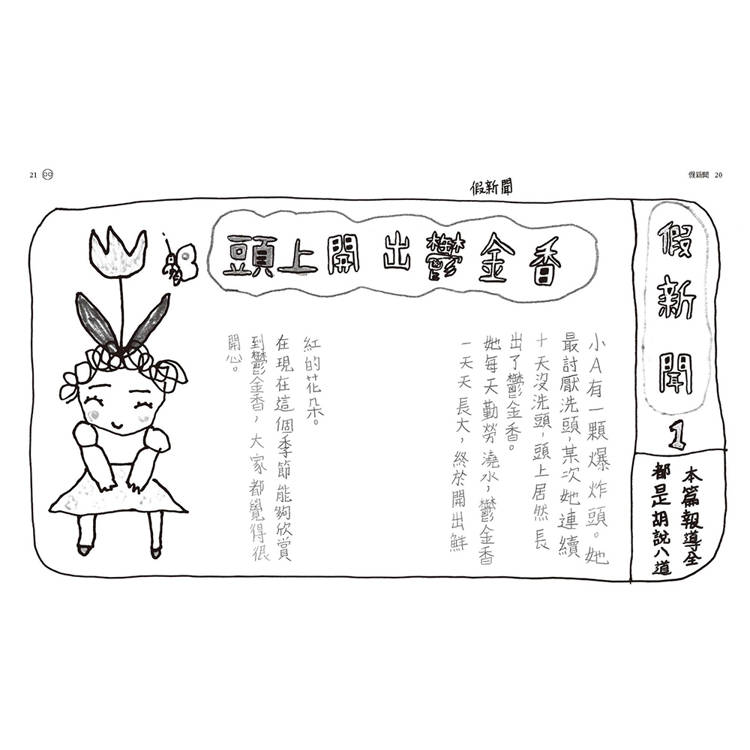 假新聞 20
假新聞
假新聞1
本篇報導全
都是胡說八道
頭上開出鬱金香
小A有一顆爆炸頭。她
最討厭洗頭,某次她連續
十天沒洗頭,頭上居然長
出了鬱金香。
她每天勤勞澆水,鬱金香
一天天長大,終於開出鮮
紅的花朵。
在現在這個季節能夠欣賞
到鬱金香,大家都覺得很
開心。
21